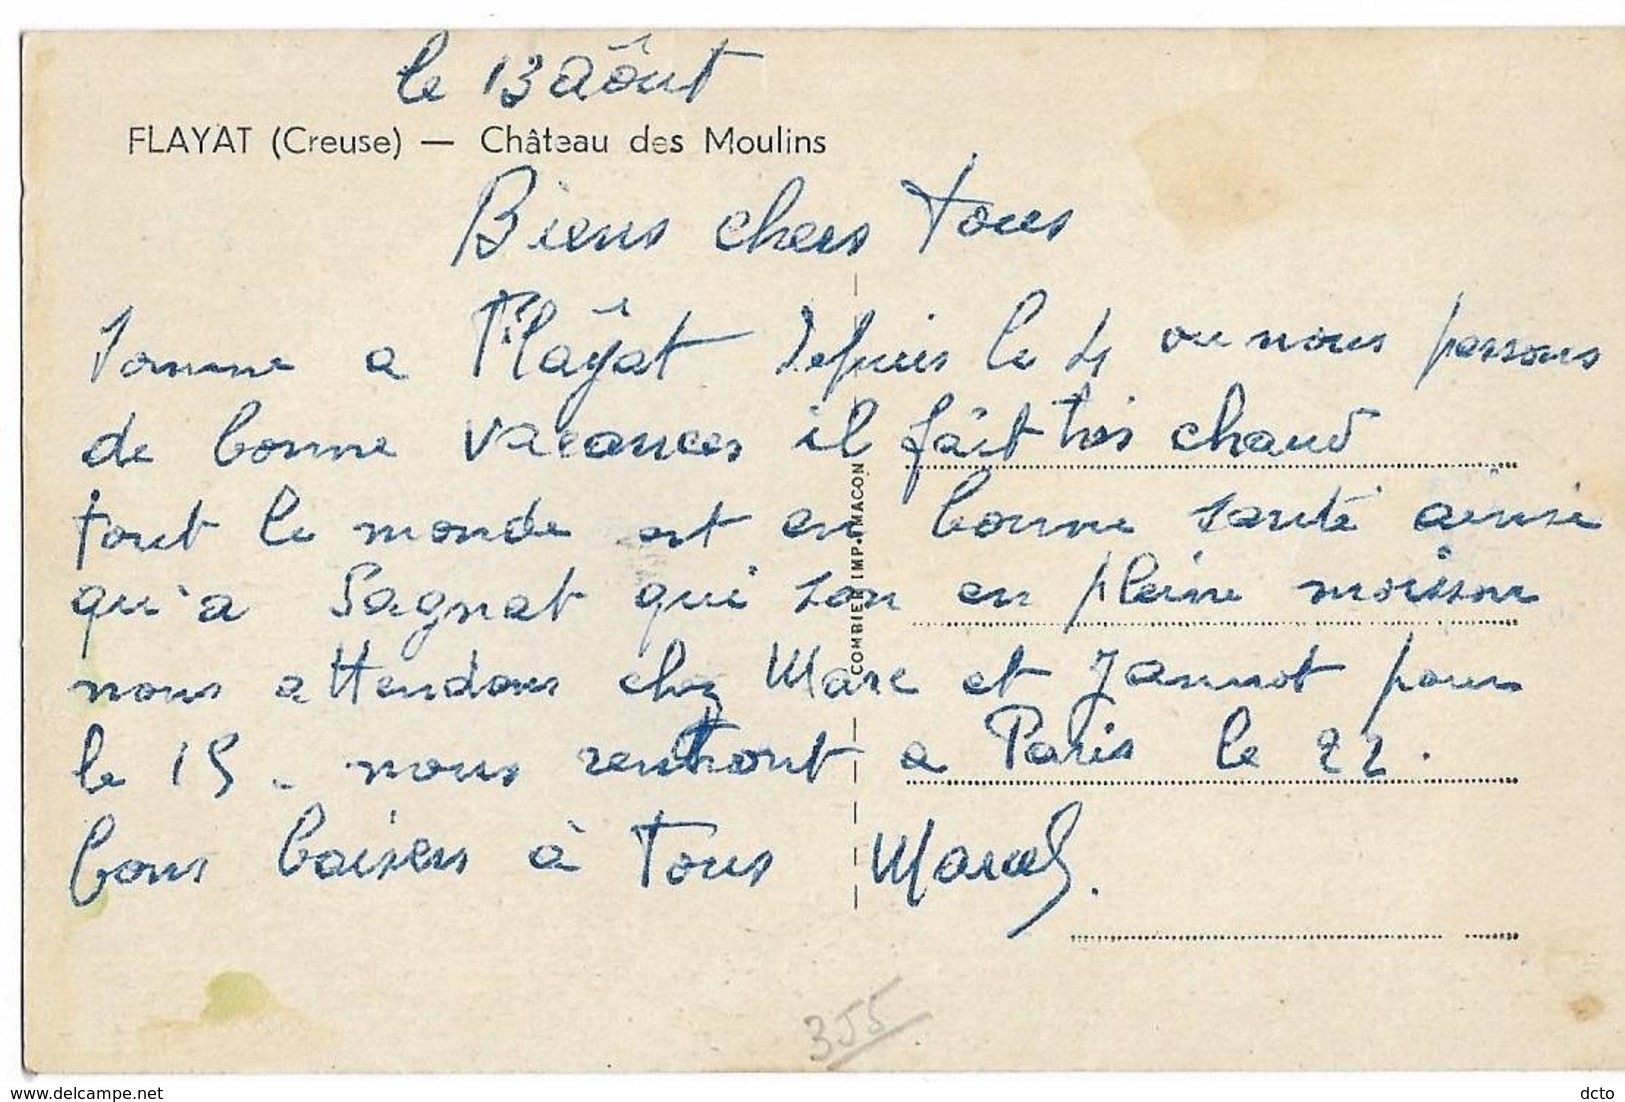 le 13 Aôut
FLAYAT (Creuse) — Château des Moulins
Biens chers Tous
Somme a Flayat depuis le 4 ou nous passons
de bonne vacances il fait très chaud
tout le monde est en bonne santé ainsi
qu'a Sagnat qui son en pleine moisson
nous attendons chez Marc et Jannot pour
le 15 - nous rentront a Paris le 22.
bons baisers à Tous Marcel.
COMBIER IMP. MACON
355
www.delcampe.net
dcto